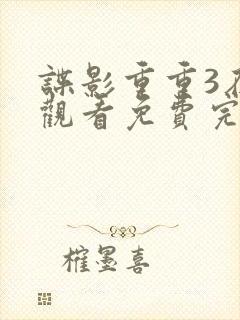 諜影重重3在
觀看免費完
墨喜